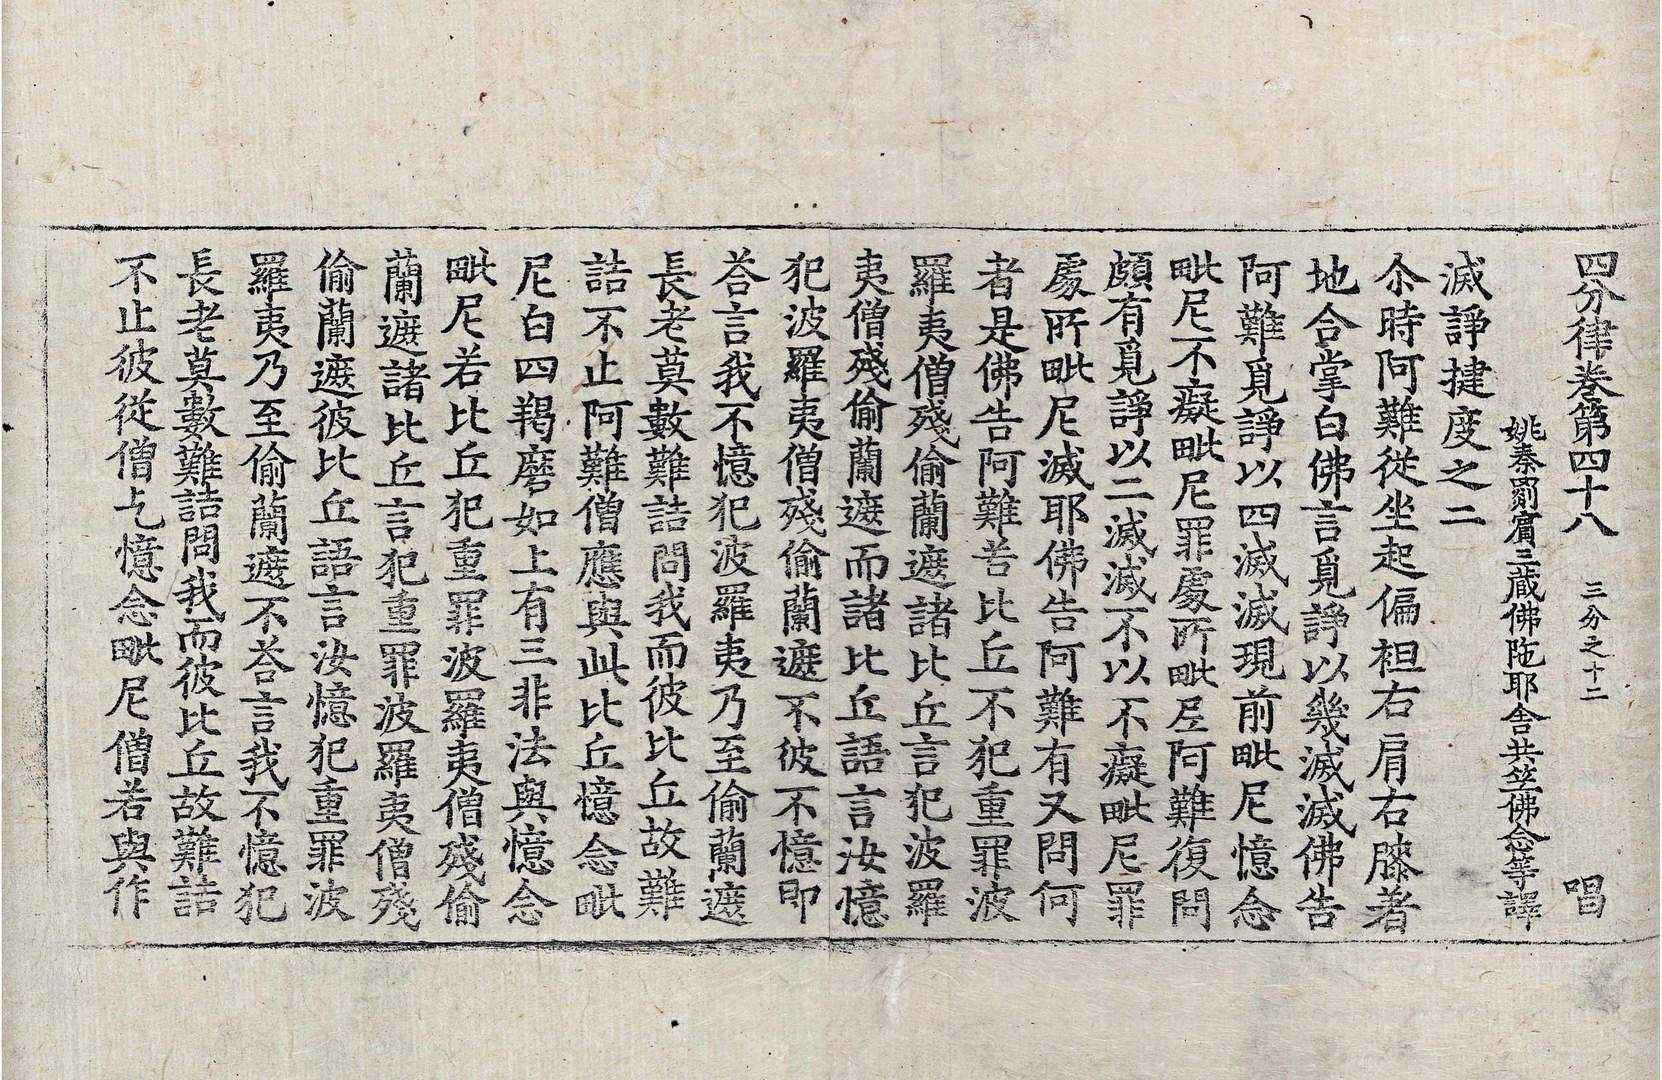 四分律卷第四十八 三分之十二 唱
姚秦罽賓三藏佛陁耶舍共竺佛念等譯
滅諍揵度之二
尒時阿難從坐起偏袒右肩右膝著
地合掌白佛言覓諍以幾滅滅佛告
阿難覓諍以四滅滅現前毗尼憶念
毗尼不癡毗尼罪處所毗尼阿難復問
頗有覓諍以二滅滅不以不癡毗尼罪
處所毗尼滅耶佛告阿難有又問何
者是佛告阿難若比丘不犯重罪波
羅夷僧殘偷蘭遮諸比丘言犯波羅
夷僧殘偷蘭遮而諸比丘語言汝憶
犯波羅夷僧殘偷蘭遮不彼不憶即
荅言我不憶犯波羅夷乃至偷蘭遮
長老莫數難詰問我而彼比丘故難
詰不止阿難僧應與此比丘憶念毗
尼白四羯磨如上有三非法與憶念
毗尼若比丘犯重罪波羅夷僧殘偷
蘭遮諸比丘言犯重罪波羅夷僧殘
偷蘭遮彼比丘語言汝憶犯重罪波
羅夷乃至偷蘭遮不荅言我不憶犯
長老莫數難詰問我而彼比丘故難詰
不止彼從僧乞憶念毗尼僧若與作